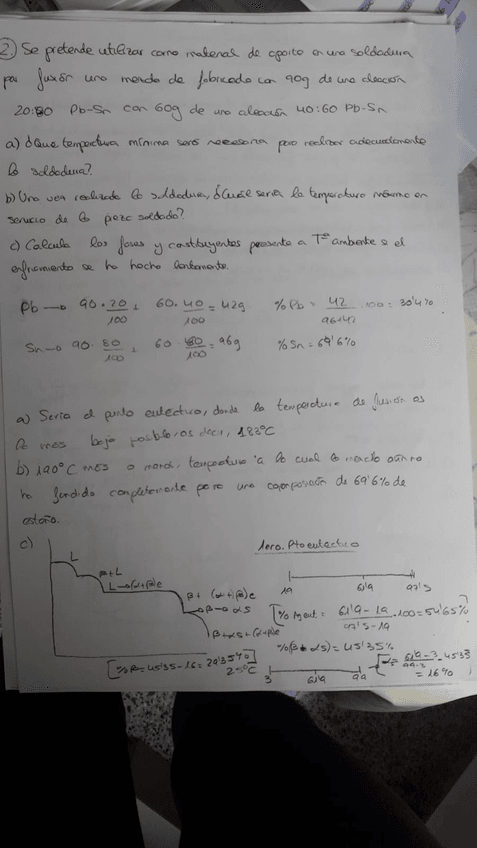 2. Se pretende utilizar como material de aporte en una soldadura
por fusión una mezcla de fabricado con 90g de una aleación
20:80 Pb-Sn con 60g de una aleación 40:60 Pb-Sn
a) ¿Que temperatura mínima será necesaria para realizar adecuadamente
la soldadura?
b) Una vez realizada la soldadura, ¿Cuál sería la temperatura máxima en
servicio de la pieza soldada?
c) Calcula las fases y constituyentes presente a Tª ambiente si el
enfriamiento se ha hecho lentamente.
Pb → 90 · 20/100 + 60 · 40/100 = 42g %Pb = 42/96+42 · 100 = 30'4%
Sn → 90 · 80/100 + 60 · 60/100 = 96g %Sn = 69'6%
a) Sería el punto eutéctico, donde la temperatura de fusión es
la más baja posible, es decir, 183ºC
b) 190ºC más o menos, temperatura a la cual la mezcla aún no
ha fundido completamente para una composición de 69'6% de
estaño.
c) 1ero. Pto eutéctico
L
β+L
L→(α+β)e
19 61'9 97'5
β + (α+β)e
β→αs
[% Aeut = 61'9-19/97'5-19 · 100 = 54'65%]
β+αs+(α+β)e
%(β+αs) = 45'35%
[%β = 45'35-16 = 29'35%]
25ºC
3 61'9 99
[αs = 61'9-3/99-3 · 45'35
= 16%]